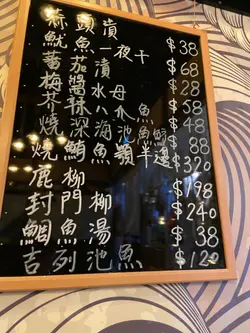 蒜頭漬 $38
魷魚一夜干 $68
蕃茄漬 $28
梅醬水母 $58
芥辣八爪魚 $48
燒深海池魚 $88
燒魚顎半邊 $320
鹿柳 $198
封門柳 $240
鯛魚湯 $38
吉列池魚 $120